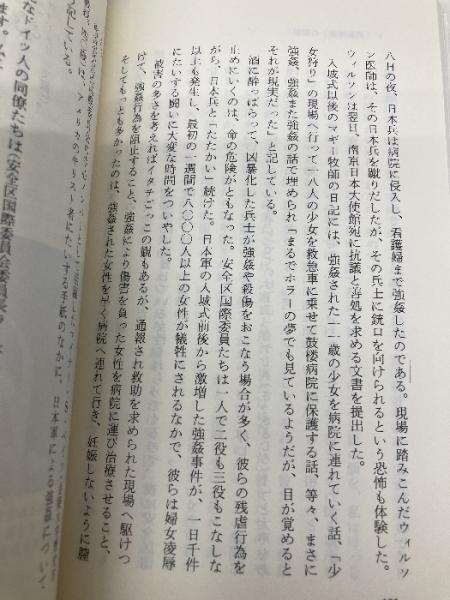 八日の夜、日本兵は病院に侵入し、看護婦まで強姦したのである。現場に踏みこんだウィルソ
ン医師は、その日本兵を蹴りだしたが、その兵士に銃口を向けられるという恐怖も体験した。
ウィルソンは翌日、南京日本大使館宛に抗議と善処を求める文書を提出した。
入城式以後のマギー牧師の日記には、強姦された一一歳の少女を病院に連れていく話、「少
女狩り」の現場へ行って一八人の少女を救急車に乗せて鼓楼病院に保護する話、等々、まさに
強姦、強姦また強姦の話で埋められ「まるでホラーの夢でも見ているようだが、目が覚めると
それが現実だった」と記している。
酒に酔っぱらって、凶暴化した兵士が強姦や殺傷をおこなう場合が多く、彼らの残虐行為を
止めにいくのは、命の危険がともなった。安全区国際委員たちは一人で二役も三役もこなしな
がら、日本兵と「たたかい」続けた。日本軍の入城式前後から激増した強姦事件が、一日千件
以上も発生し、最初の一週間で八〇〇〇人以上の女性が犠牲にされるなかで、彼らは婦女凌辱
にたいする闘いに大変な時間をついやした。
被害の多さを考えればイタチごっこの観もあるが、通報され救助を求められた現場へ駆けつ
けて、強姦行為を阻止すること、強姦により傷害を負った女性を病院に運び治療させること、
そしてもっとも多かったのは、強姦された女性を早く病院へ連れて行き、妊娠しないように膣
者にたいする手紙のなかに、日本軍による強姦について、
している。
なドイツ人の同僚たちは（安全区国際委員会委員長
ます。